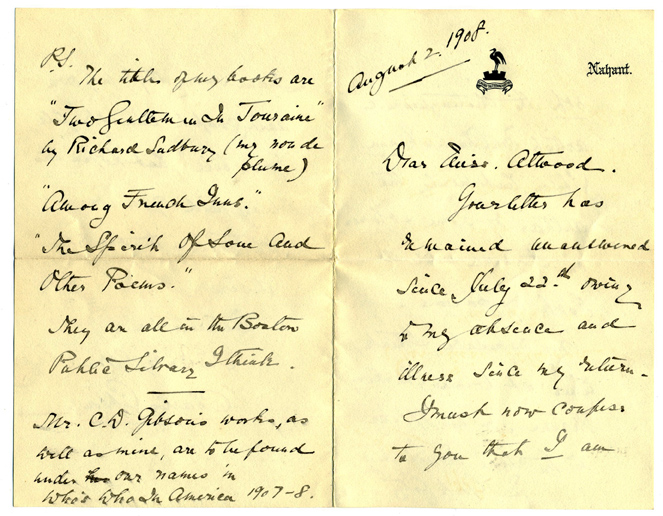 P.S.
The titles of my books are
"Two Gentlemen In Touraine"
by Richard Sudbury (my nom de
plume)
"Among French Inns."
"The Spirit Of Love And
Other Poems."
They are all in the Boston
Public Library I think.
Mr. C.D. Gibson's works, as
well as mine, are to be found
under our names in
Who's Who In America 1907-8.
August 2. 1908.
Nahant.
Dear Miss. Attwood.
Your letter has
remained unanswered
since July 22nd owing
to my absence and
illness since my return.
I must now confess
to you that I am